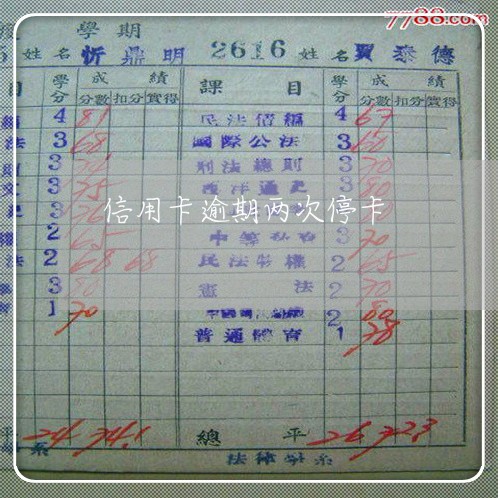 7788.com
學期
姓名 忻鼎明 2616 姓名 賈泰德
目 學分 成績 課目 學分 成績
分數 扣分 實得 分數 扣分 實得
4 81 民法債編 4 67
法 3 68 國際公法 3 60
3 刑法總則 3 70
3 75 西洋通史 3 80
信用卡逾期两次停卡
2 65 3 70
法 2 68 68 民法物權 2 65
3 80 憲法 2 70
1 70 2 80
普通體育 1 78
平 24 74.1 總平 26 72.3
系 法律學系